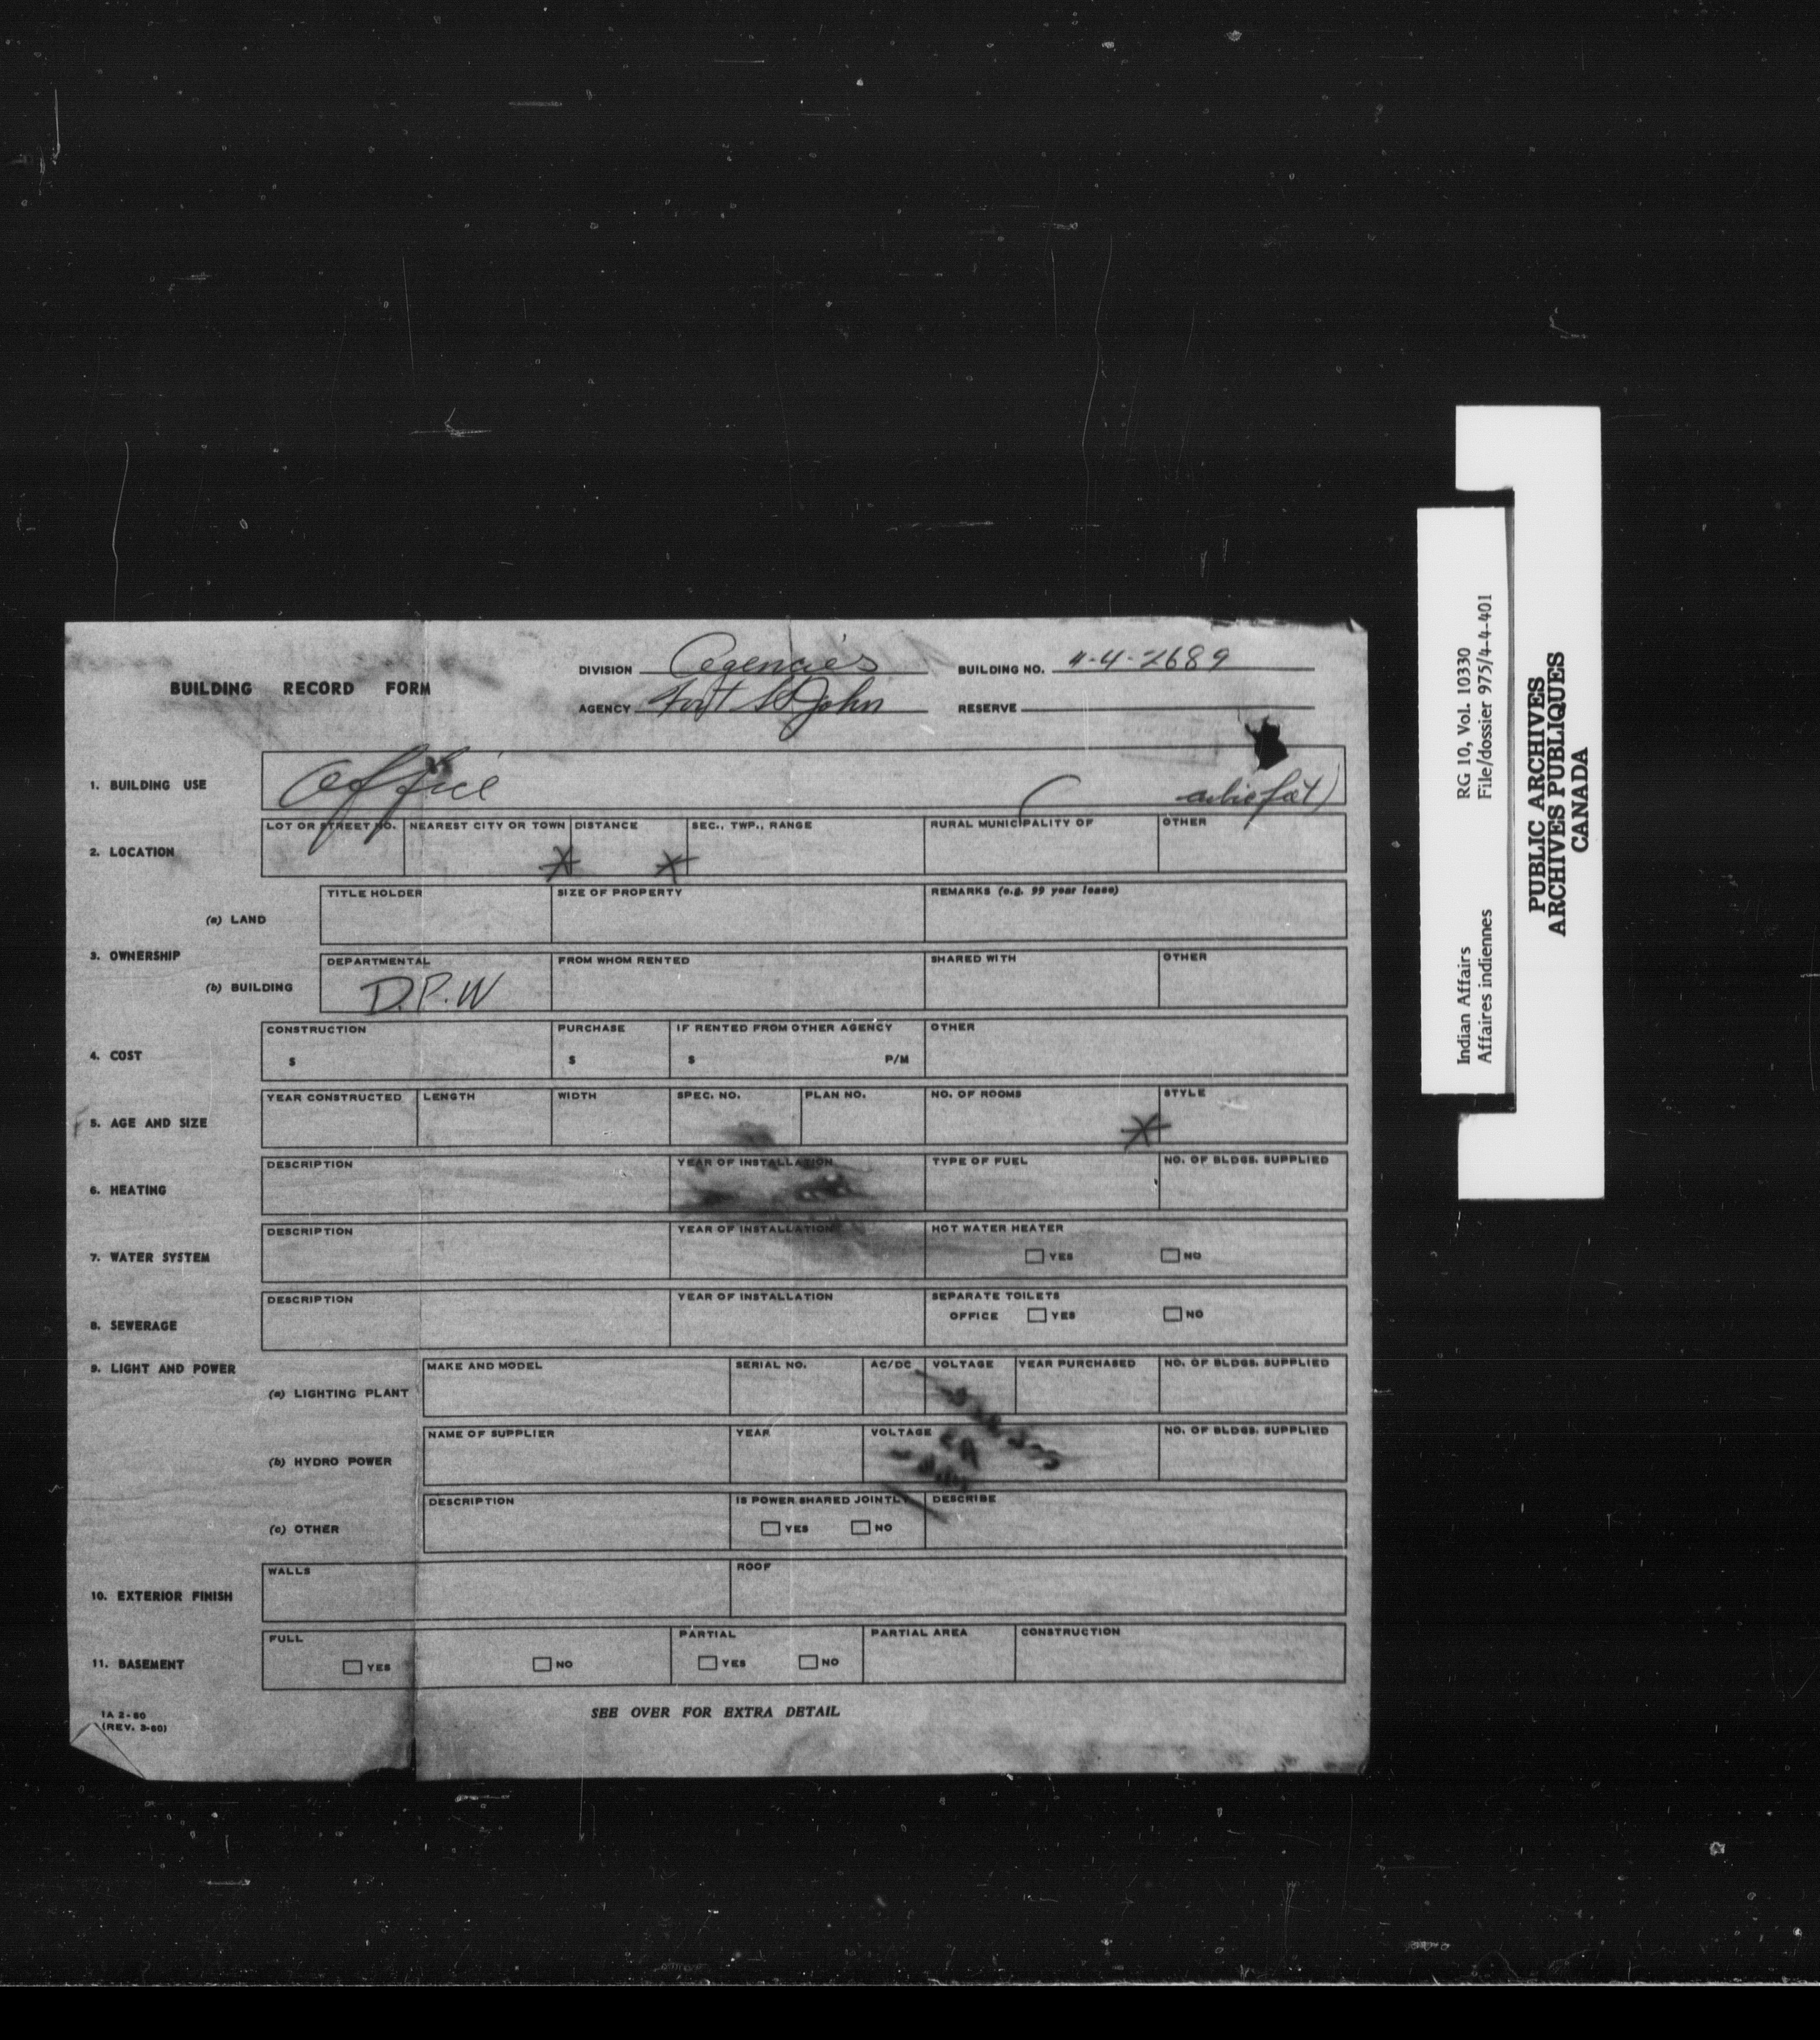 BUILDING RECORD FORM
DIVISION Agencies
BUILDING NO. 4-4-2689
AGENCY Fort St John
RESERVE
1. BUILDING USE
Office
( cubic feet)
2. LOCATION
LOT OR STREET NO. NEAREST CITY OR TOWN DISTANCE SEC., TWP., RANGE RURAL MUNICIPALITY OF OTHER
3. OWNERSHIP
(a) LAND
TITLE HOLDER SIZE OF PROPERTY REMARKS (e.g. 99 year lease)
(b) BUILDING
DEPARTMENTAL FROM WHOM RENTED SHARED WITH OTHER
D.P.W
4. COST
CONSTRUCTION PURCHASE IF RENTED FROM OTHER AGENCY OTHER
$ $ $ P/M
5. AGE AND SIZE
YEAR CONSTRUCTED LENGTH WIDTH SPEC. NO. PLAN NO. NO. OF ROOMS STYLE
6. HEATING
DESCRIPTION YEAR OF INSTALLATION TYPE OF FUEL NO. OF BLDGS. SUPPLIED
7. WATER SYSTEM
DESCRIPTION YEAR OF INSTALLATION HOT WATER HEATER
YES NO
8. SEWERAGE
DESCRIPTION YEAR OF INSTALLATION SEPARATE TOILETS
OFFICE YES NO
9. LIGHT AND POWER
(a) LIGHTING PLANT
MAKE AND MODEL SERIAL NO. AC/DC VOLTAGE YEAR PURCHASED NO. OF BLDGS. SUPPLIED
(b) HYDRO POWER
NAME OF SUPPLIER YEAR VOLTAGE NO. OF BLDGS. SUPPLIED
(c) OTHER
DESCRIPTION IS POWER SHARED JOINTLY DESCRIBE
YES NO
10. EXTERIOR FINISH
WALLS ROOF
11. BASEMENT
FULL PARTIAL PARTIAL AREA CONSTRUCTION
YES NO YES NO
IA 2-60
(REV. 3-60)
SEE OVER FOR EXTRA DETAIL
Indian Affairs RG 10, Vol. 10330
Affaires indiennes File/dossier 975/4-4-401
PUBLIC ARCHIVES
ARCHIVES PUBLIQUES
CANADA